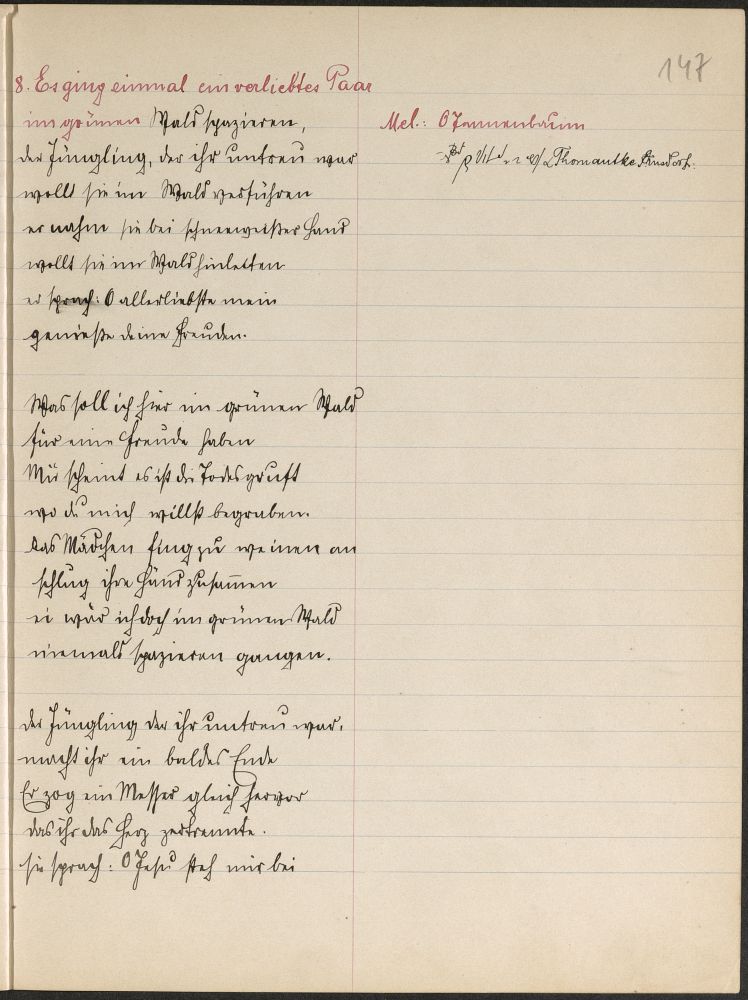 147
8. Es ging einmal ein verliebtes Paar
im grünen Wald spazieren,
der Jüngling, der ihr untreu war
wollt sie im Wald verführen
er nahm sie bei schneeweißer Hand
wollt sie im Wald hinleiten
er sprach: O allerliebste mein
genieße deine Freuden.
Mel.: O Tannenbaum
Thomantke Arnsdorf.
Was soll ich hier im grünen Wald
für eine Freude haben
Mir scheint es ist die Todesgruft
wo du mich willst begraben.
das Mädchen fing zu weinen an
schlug ihre Händ zusammen
ei wär ich doch im grünen Wald
niemals spazieren gangen.
der Jüngling der ihr untreu war,
macht ihr ein baldes Ende
Er zog ein Messer gleich hervor
das ihr das Herz zertrennte.
sie sprach: O Jesu steh mir bei